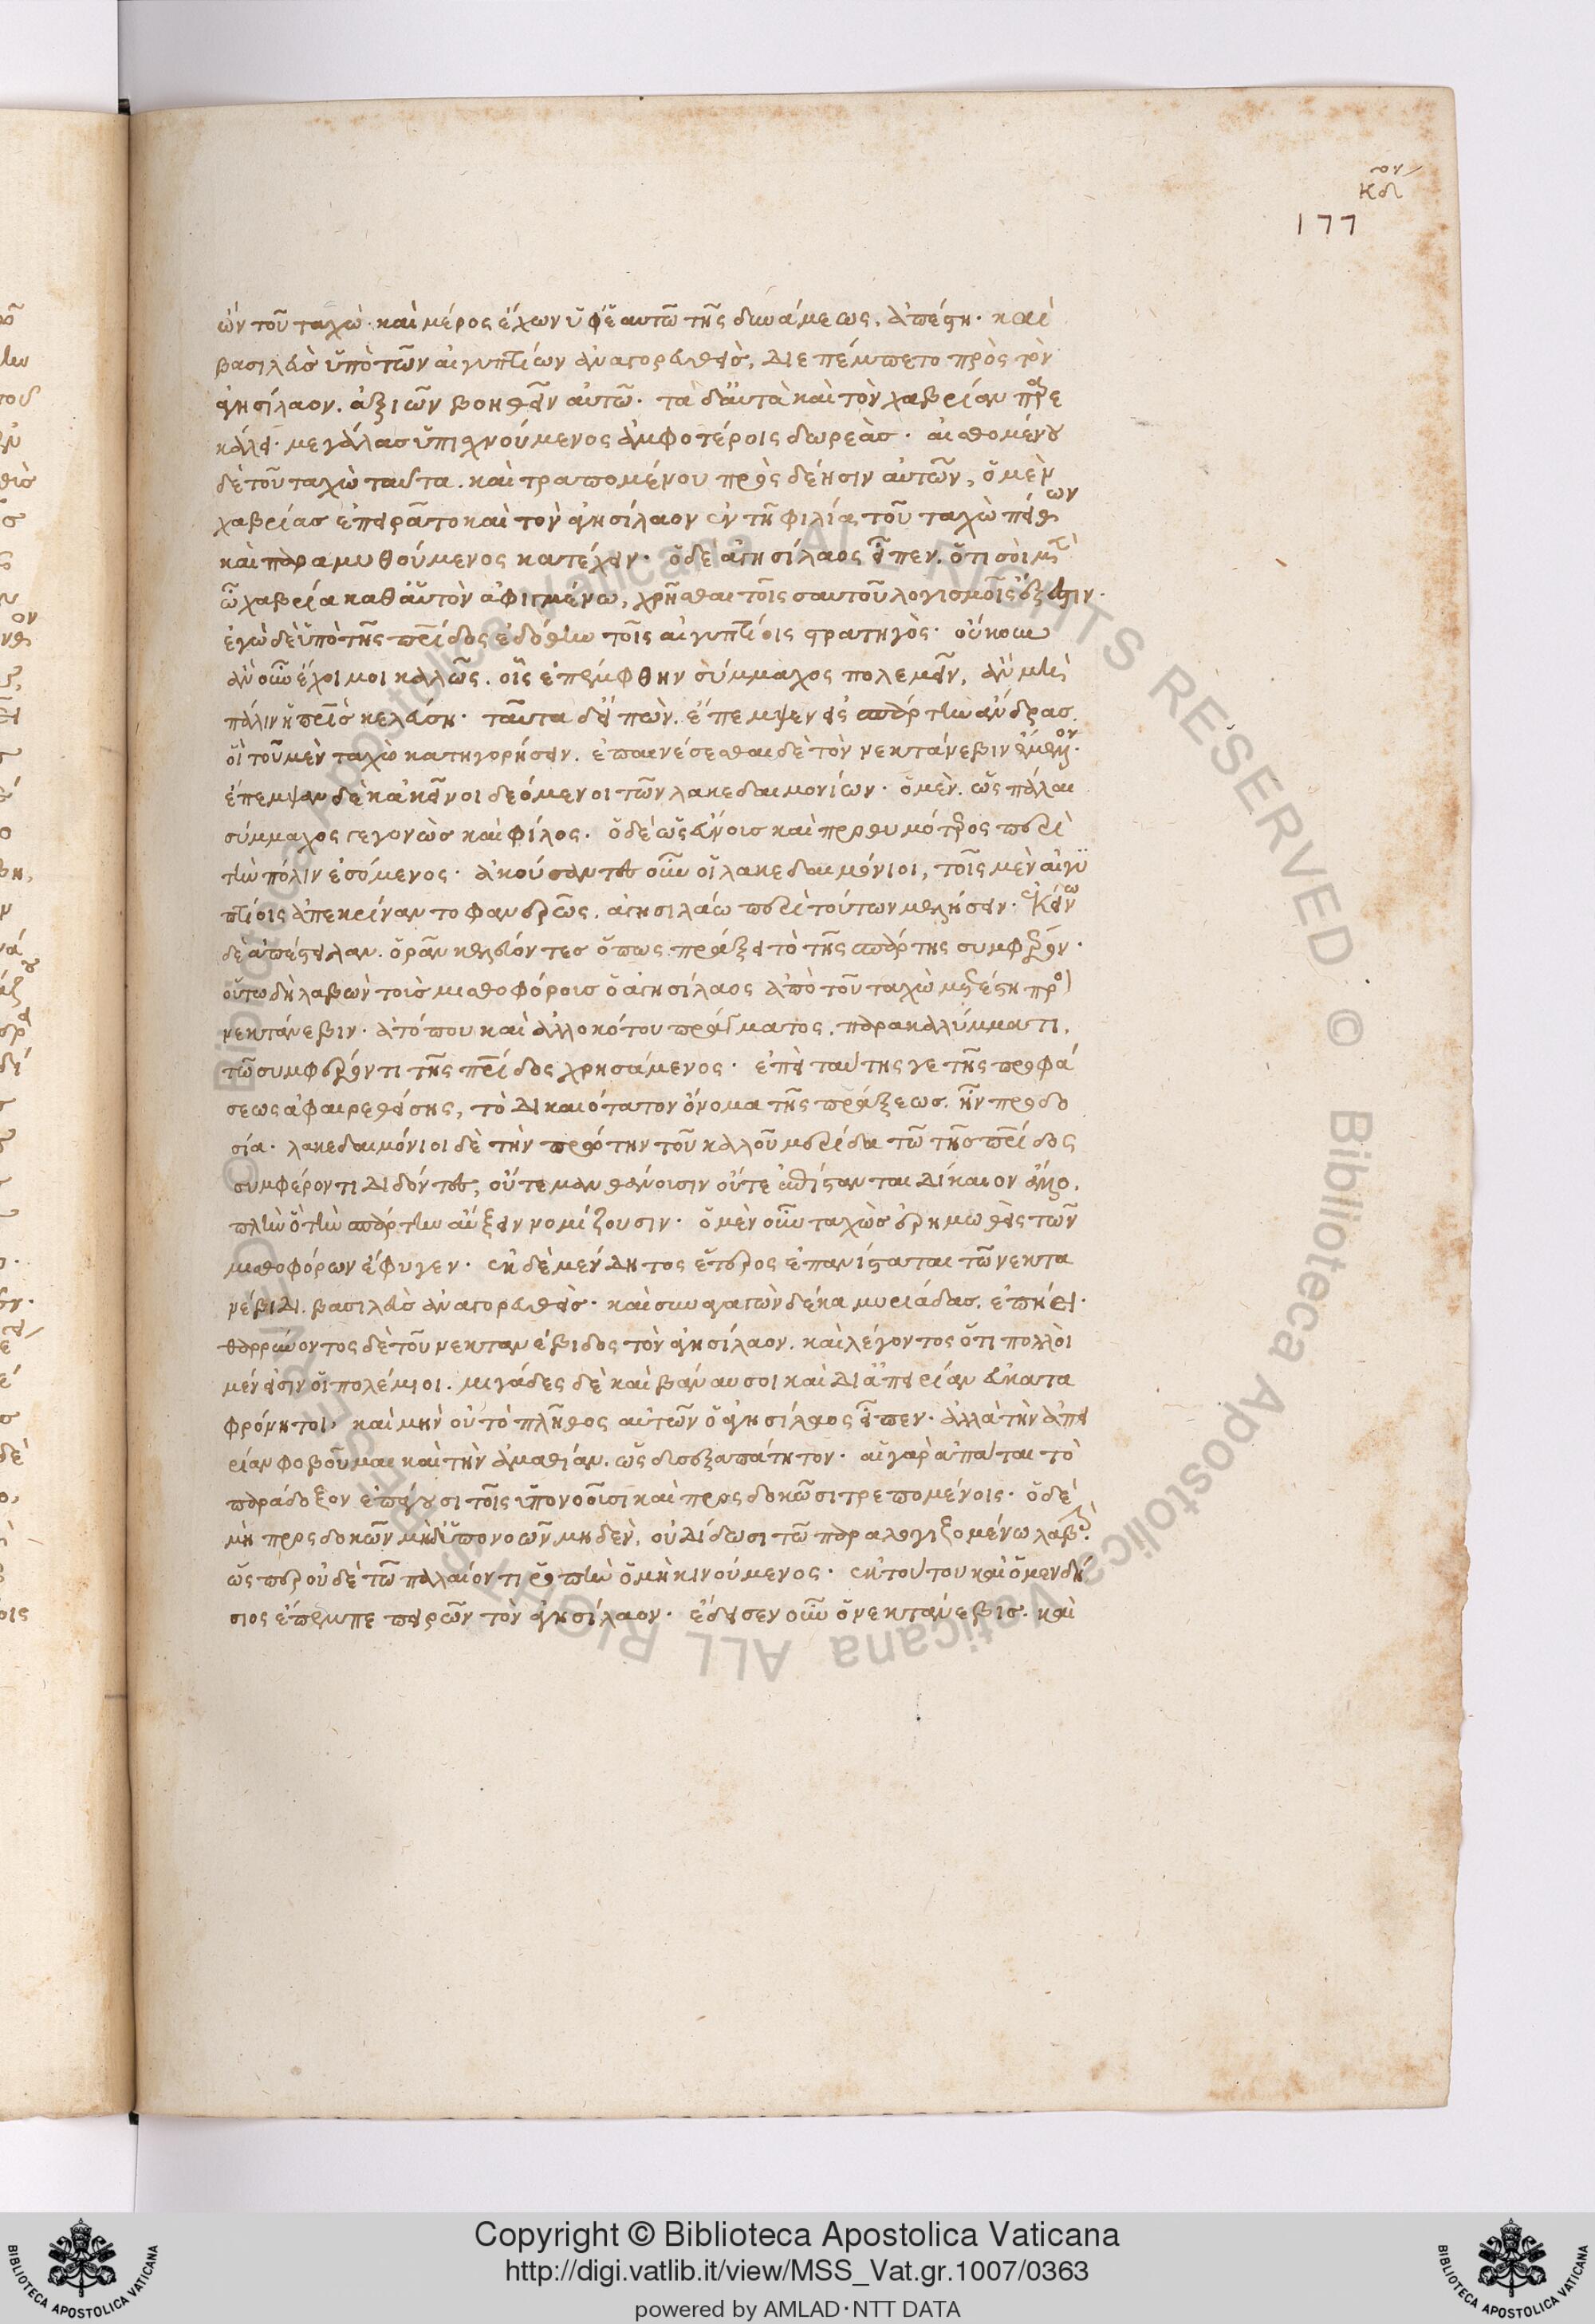 κδον
177
ὢν τοῦ ταχὼ· καὶ μέρος ἔχων ὑφ' ἑαυτῶ τῆς δυνάμεως, ἀπέστη· καὶ
βασιλεὺς ὑπὸ τῶν αἰγυπτίων ἀναγορευθεὶς, διεπέμπετο πρὸς τὸν
ἀγησίλαον. ἀξιῶν βοηθεῖν αὐτῶ· τὰ δ' αὐτὰ καὶ τὸν χαβρίαν παρε
κάλει· μεγάλας ὑπισχνούμενος ἀμφοτέροις δωρεὰς· αἰσθομένου
δὲ τοῦ ταχὼ ταῦτα. καὶ τραπομένου πρὸς δέησιν αὐτῶν, ὁ μὲν
χαβρίας ἐπειρᾶτο καὶ τὸν ἀγησίλαον ἐν τῆ φιλία τοῦ ταχὼ πείθων
καὶ παραμυθούμενος κατέχειν· ὁ δὲ ἀγησίλαος εἶπεν. ὅτι σοὶ μὲν
ὦ χαβρία καθ' αὑτὸν ἀφιγμένω, χρῆσθαι τοῖς σαυτοῦ λογισμοῖς ἔξεστιν·
ἐγὼ δὲ ὑπὸ τῆς πατρίδος ἐδόθην τοῖς αἰγυπτίοις στρατηγὸς· οὔκουν
ἂν οὖν ἔχοι μοι καλῶς. οἷς ἐπέμφθην σύμμαχος πολεμεῖν, ἂν μὴ
πάλιν ἡ πατρὶς κελεύση· ταῦτα δ' εἰπὼν. ἔπεμψεν εἰς σπάρτην ἄνδρας.
οἳ τοῦ μὲν ταχὼ κατηγορήσειν. ἐπαινέσεσθαι δὲ τὸν νεκτάνεβιν ἔμελλον·
ἔπεμψαν δὲ κἀκεῖνοι δεόμενοι τῶν λακεδαιμονίων· ὁ μὲν. ὡς πάλαι
σύμμαχος γεγονὼς καὶ φίλος· ὁ δὲ ὡς εὔνοις καὶ προθυμότερος περὶ
τὴν πόλιν ἐσόμενος· ἀκούσαντες οὖν οἱ λακεδαιμόνιοι, τοῖς μὲν αἰγυ
πτίοις ἀπεκρίναντο φανερῶς. ἀγησιλάω περὶ τούτων μελήσειν· ἐκείνω
δὲ ἀπέστειλαν. ὁρᾶν κελεύοντες ὅπως πράξει τὸ τῆς σπάρτης συμφέρον·
οὕτω δὴ λαβὼν τοὺς μισθοφόρους ὁ ἀγησίλαος ἀπὸ τοῦ ταχὼ μετέστη πρὸς
νεκτάνεβιν· ἀτόπου καὶ ἀλλοκότου πράγματος. παρακαλύμματι,
τῶ συμφέροντι τῆς πατρίδος χρησάμενος· ἐπεὶ ταύτης γε τῆς προφά
σεως ἀφαιρεθείσης, τὸ δικαιότατον ὄνομα τῆς πράξεως. ἦν προδο
σία· λακεδαιμόνιοι δὲ τὴν πρώτην τοῦ καλοῦ μερίδα τῶ τῆς πατρίδος
συμφέροντι διδόντες, οὔτε μανθάνουσιν οὔτε ἐπίστανται δίκαιον ἄλλο,
πλὴν ὃ τὴν σπάρτην αὔξειν νομίζουσιν· ὁ μὲν οὖν ταχὼς ἐρημωθεὶς τῶν
μισθοφόρων ἔφυγεν· ἐκ δὲ μένδητος ἕτερος ἐπανίσταται τῶ νεκτα
νέβιδι. βασιλεὺς ἀναγορευθεὶς· καὶ συναγαγὼν δέκα μυριάδας. ἐπήει·
θαρρύνοντος δὲ τοῦ νεκτανέβιδος τὸν ἀγησίλαον. καὶ λέγοντος ὅτι πολλοὶ
μέν εἰσιν οἱ πολέμιοι. μιγάδες δὲ καὶ βάναυσοι καὶ δι' ἀπειρίαν εὐκατα
φρόνητοι, καὶ μὴν οὐ τὸ πλῆθος αὐτῶν ὁ ἀγησίλαος εἶπεν· ἀλλὰ τὴν ἀπει
ρίαν φοβοῦμαι καὶ τὴν ἀμαθίαν. ὡς δυσεξαπάτητον· αἱ γὰρ ἀπάται τὸ
παράδοξον ἐπάγουσι τοῖς ὑπονοοῦσι καὶ προσδοκῶσι τρεπομένοις· ὁ δὲ
μὴ προσδοκῶν μηδ' ὑπονοῶν μηδὲν, οὐ δίδωσι τῶ παραλογιζομένω λαβὴν·
ὥσπερ οὐδὲ τῶ παλαίοντι ῥοπὴν ὁ μὴ κινούμενος· ἐκ τούτου καὶ ὁ μενδή
σιος ἔπεμπε πειρῶν τὸν ἀγησίλαον· ἔδεισεν οὖν ὁ νεκτάνεβις. καὶ
© Biblioteca Apostolica Vaticana ALL RIGHTS RESERVED © Biblioteca Apostolica Vaticana ALL RIGHTS RESERVED
Copyright © Biblioteca Apostolica Vaticana
http://digi.vatlib.it/view/MSS_Vat.gr.1007/0363
powered by AMLAD·NTT DATA
BIBLIOTECA APOSTOLICA VATICANA
BIBLIOTECA APOSTOLICA VATICANA